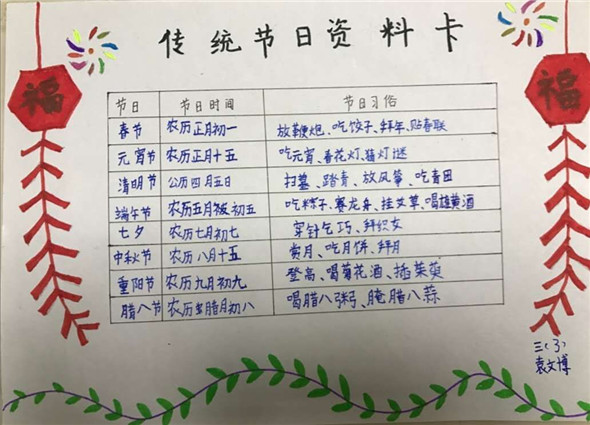 传统节日资料卡
福
福
节日 节日时间 节日习俗
春节 农历正月初一 放鞭炮、吃饺子、拜年、贴春联
元宵节 农历正月十五 吃元宵、看花灯、猜灯谜
清明节 公历四月五日 扫墓、踏青、放风筝、吃青团
端午节 农历五月初五 吃粽子、赛龙舟、挂艾草、喝雄黄酒
七夕 农历七月初七 穿针乞巧、拜织女
中秋节 农历八月十五 赏月、吃月饼、拜月
重阳节 农历九月初九 登高、喝菊花酒、插茱萸
腊八节 农历腊月初八 喝腊八粥、腌腊八蒜
三(3)
袁文博